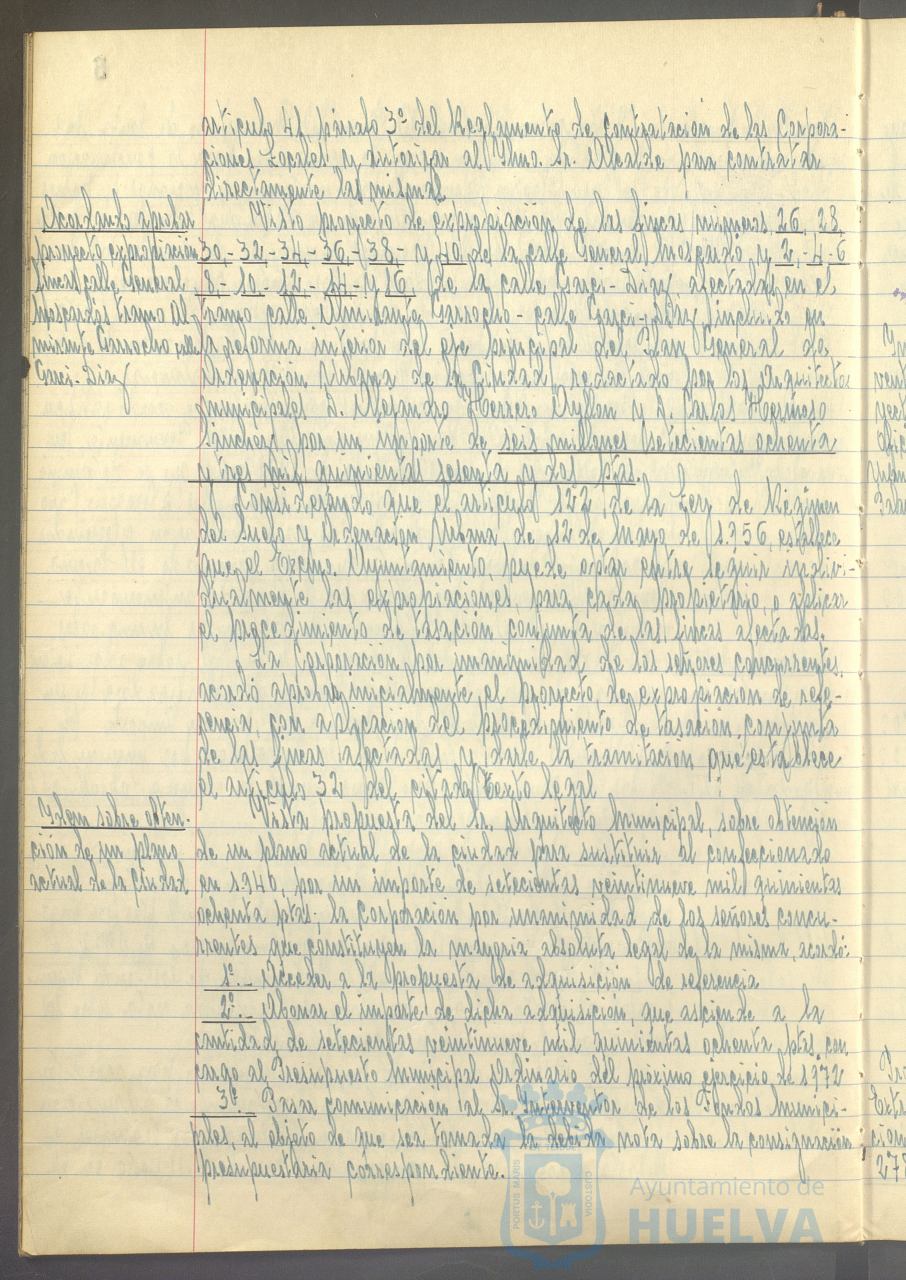 artículo 41 párrafo 3º del Reglamento de contratación de las Corpora-
ciones Locales y autorizar al Ilmo. Sr. Alcalde para contratar
directamente las mismas.
Acordando aprobar
proyecto expropiación
fincas calle General
Moscardó tramo Al-
mirante Garrocho calle
Garci-Díaz
Visto proyecto de expropiación de las fincas números 26, 28,
30,-32-34,-36,-38,- y 40, de la calle General Moscardó y 2,-4-6
8,-10,-12,-14-y 16, de la calle Garci-Díaz afectadas en el
tramo calle Almirante Garrocho-calle Garci-Díaz incluido en
la reforma interior del eje principal del Plan General de
Ordenación Urbana de la Ciudad, redactado por los Arquitectos
municipales D. Alejandro Herrero Ayllon y D. Carlos Hermoso
Sánchez por un importe de seis millones setecientas ochenta
y tres mil quinientas sesenta y dos ptas.
Considerando que el artículo 122, de la Ley de Régimen
del Suelo y Ordenación Urbana, de 12 de Mayo de 1.956, establece
que el Excmo. Ayuntamiento, puede optar entre seguir indivi-
dualmente las expropiaciones, para cada propietario, o aplicar
el procedimiento de tasación conjunta de las fincas afectadas.
La Corporación por unanimidad de los señores concurrentes,
acordó aprobar inicialmente, el proyecto, de expropiación de refe-
rencia, con aplicación del procedimiento de tasación, conjunta
de las fincas afectadas y darle la tramitación que establece
el artículo 32 del citado Texto legal
Idem sobre obten-
ción de un plano
actual de la Ciudad
Vista propuesta del Sr. Arquitecto Municipal, sobre obtención
de un plano actual de la ciudad para sustituir al confeccionado
en 1.946, por un importe de setecientas veintinueve mil quinientas
ochenta ptas; la Corporación por unanimidad de los señores concu-
rrentes que constituyen la mayoría absoluta legal de la misma, acordó:
1º.- Acceder a la propuesta de adquisición de referencia
2º.- Abonar el importe de dicha adquisición, que asciende a la
cantidad de setecientas veintinueve mil quinientas ochenta ptas, con
cargo al Presupuesto Municipal Ordinario del próximo ejercicio de 1972
3º.- Pasar comunicación al Sr. Interventor de los Fondos Munici-
pales, al objeto de que sea tomada la debida nota sobre la consignación
presupuestaria correspondiente.
PORTUS MARIS
CUSTODIA
Ayuntamiento de
HUELVA